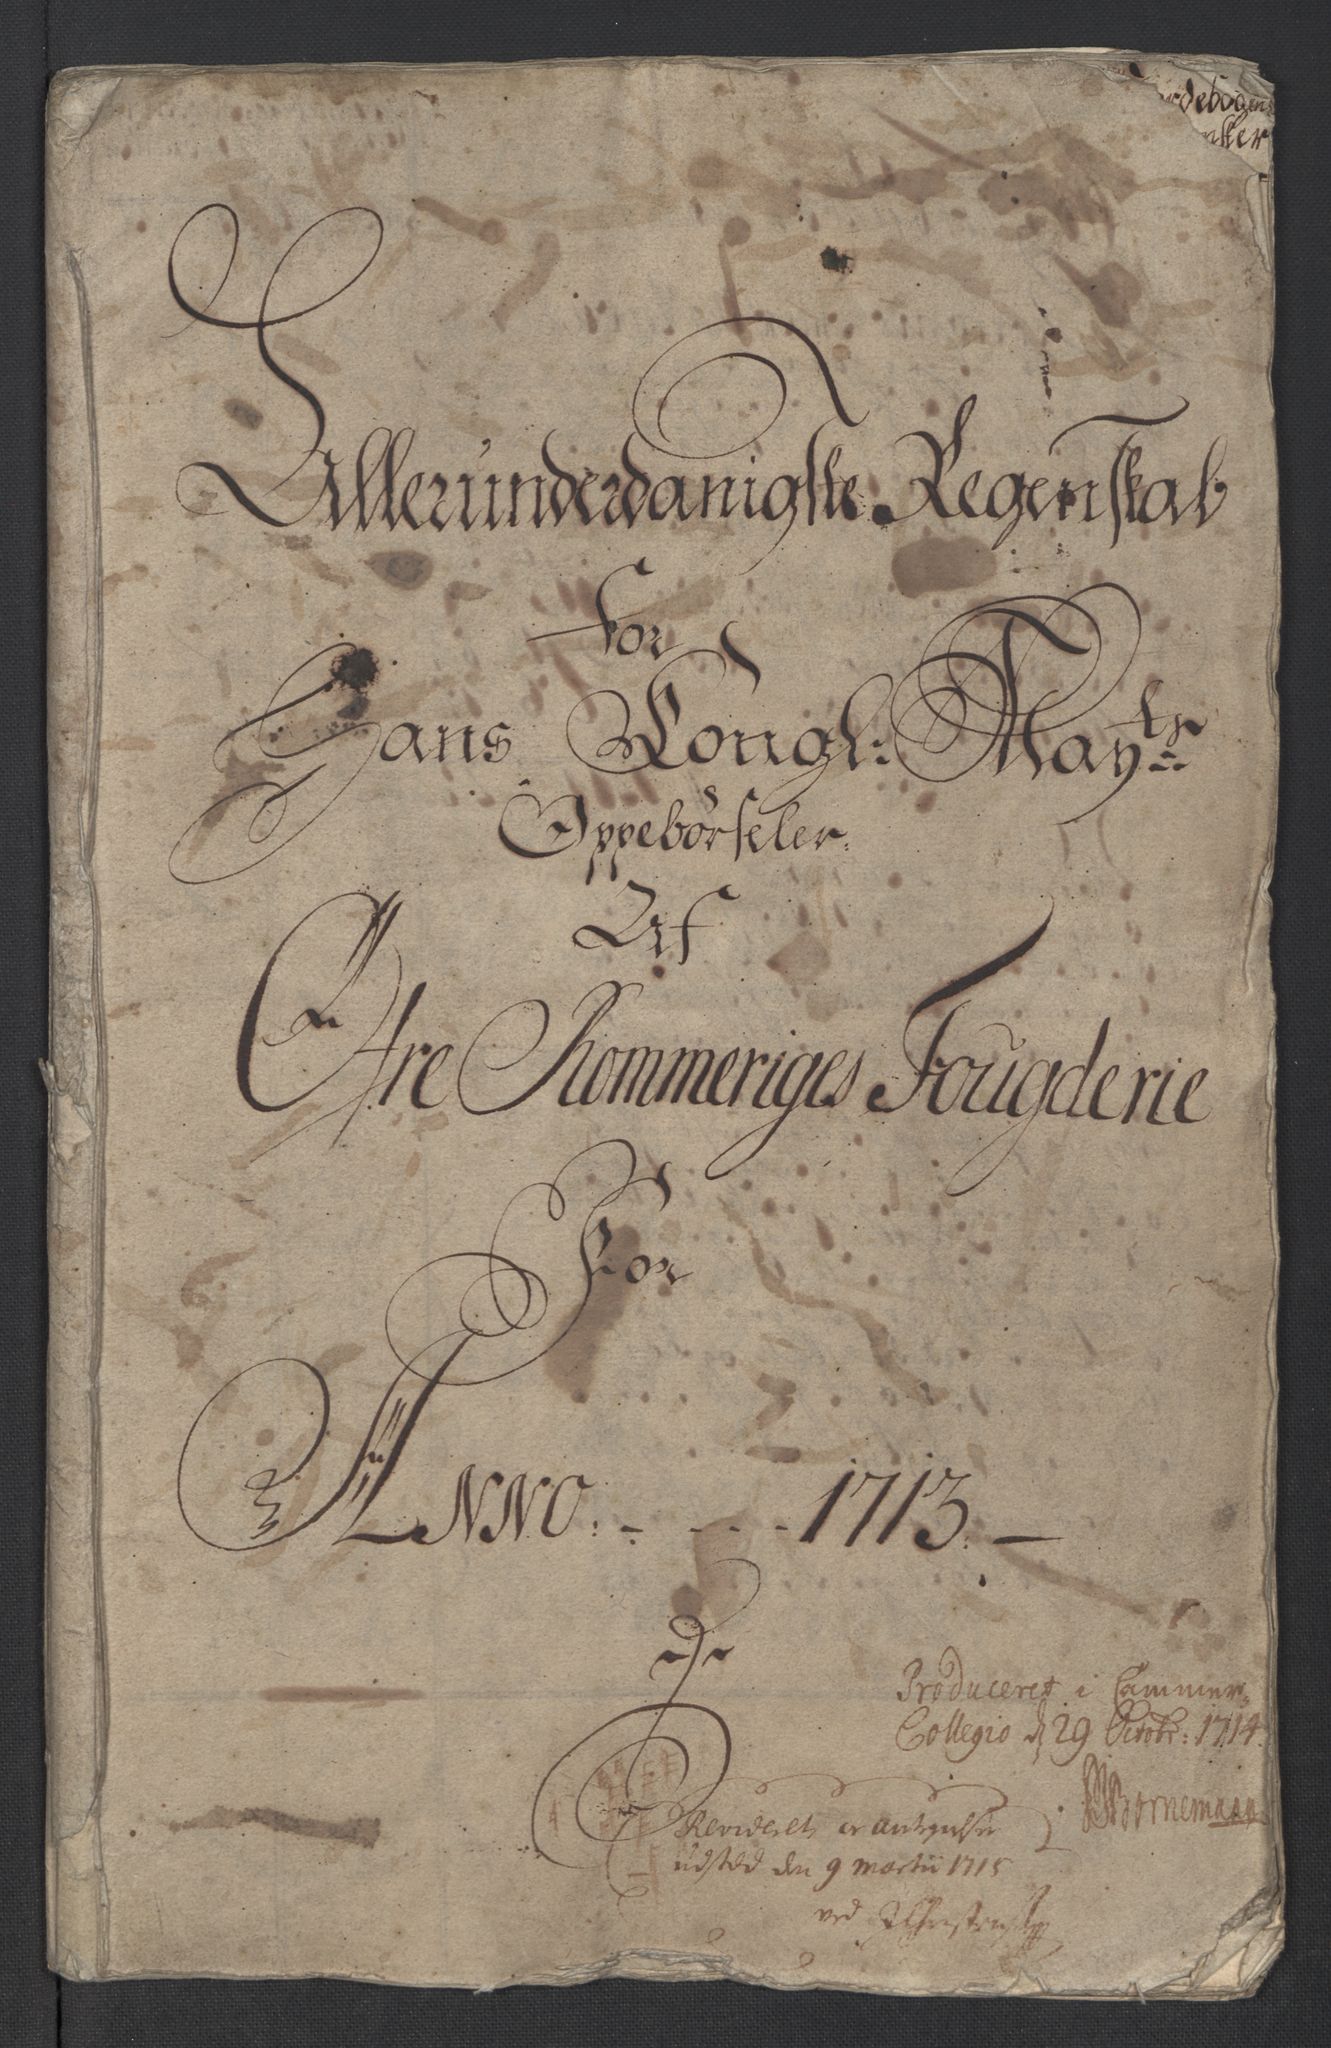 rdebogens
nster
Allerunderdanigste Regenskab
for
Hans Kongl: May:ts
Oppebørseler.
Af
Øfre Rommeriges Fougderie
For
ANNO. - - - - 1713. -
Produceret i Cammer-
Collegio d 29 Octobr: 1714.
Bornemann
Revideret oc antegnelser
udsted den 9 Martii 1715
ved